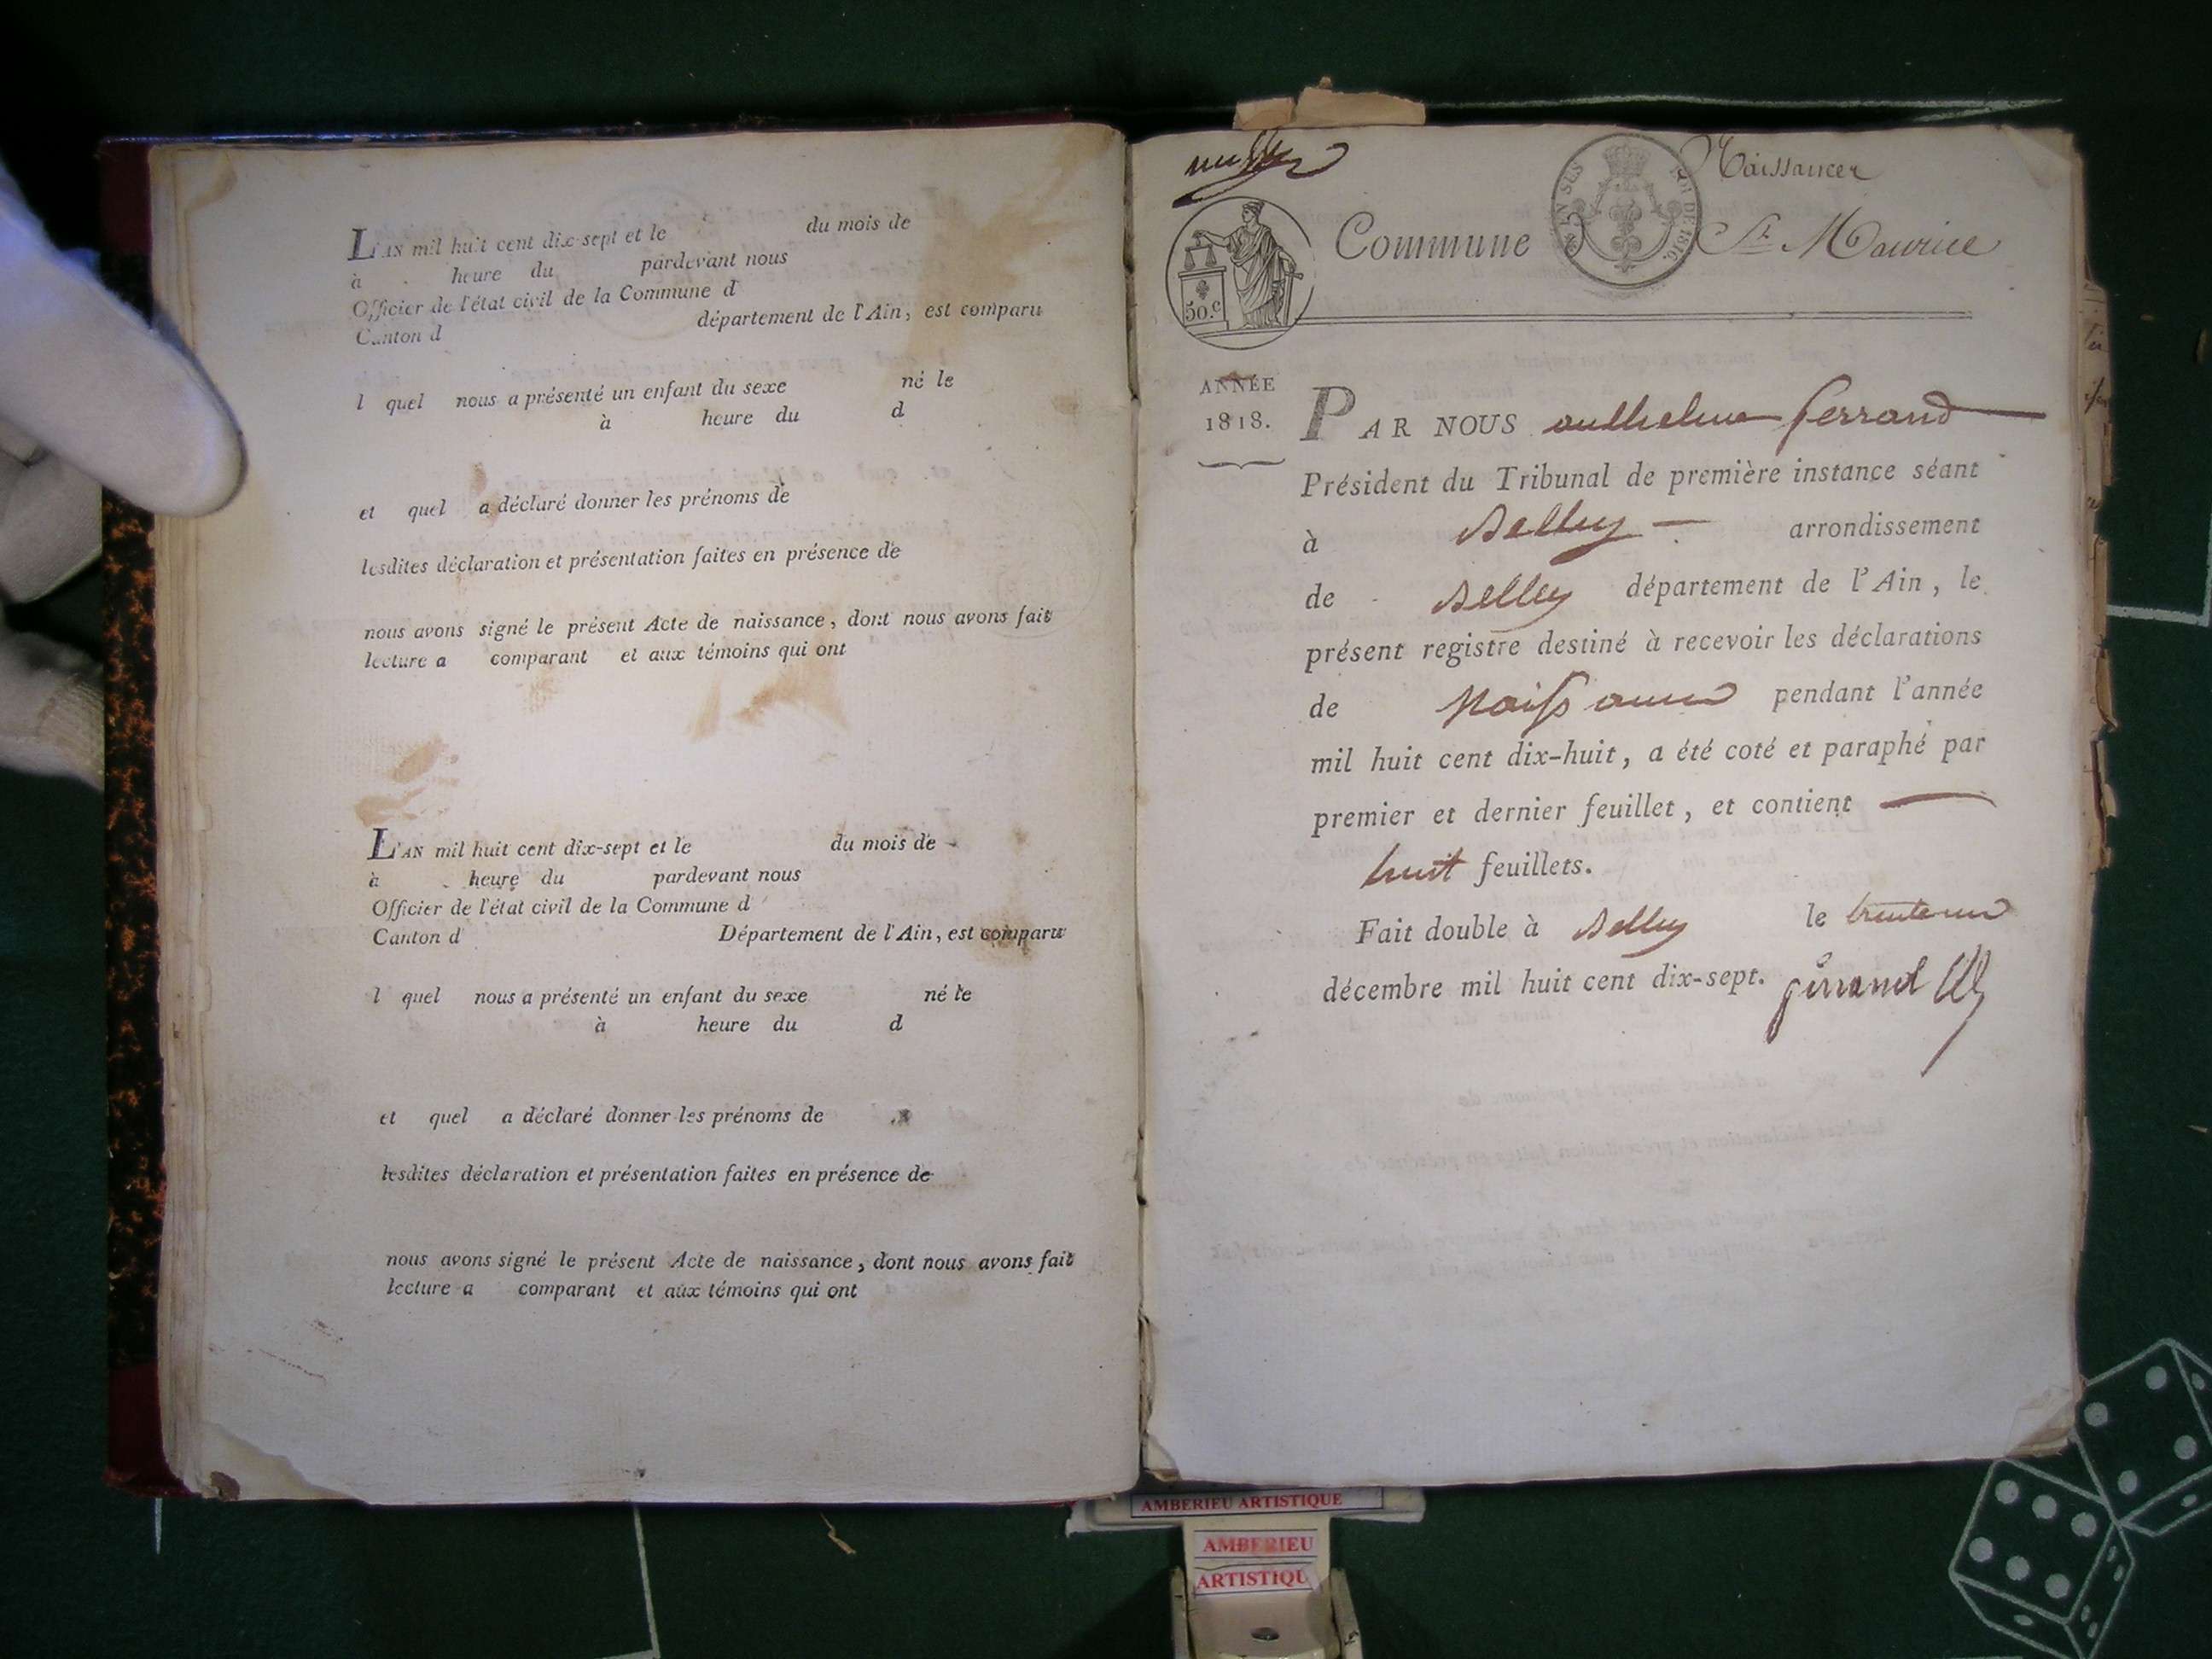 L'AN mil huit cent dix-sept et le du mois de
à heure du pardevant nous
Officier de l'état civil de la Commune d
Canton d département de l'Ain, est comparu
l quel nous a présenté un enfant du sexe né le
à heure du d
et quel a déclaré donner les prénoms de
lesdites déclaration et présentation faites en présence de
nous avons signé le présent Acte de naissance, dont nous avons fait
lecture a comparant et aux témoins qui ont
L'AN mil huit cent dix-sept et le du mois de
à heure du pardevant nous
Officier de l'état civil de la Commune d
Canton d Département de l'Ain, est comparu
l quel nous a présenté un enfant du sexe né le
à heure du d
et quel a déclaré donner les prénoms de
lesdites déclaration et présentation faites en présence de
nous avons signé le présent Acte de naissance, dont nous avons fait
lecture a comparant et aux témoins qui ont
Naissances
50.c
Commune St Maurice
ANNÉE
1818.
PAR NOUS anthelme ferrand
Président du Tribunal de première instance séant
à Belley arrondissement
de Belley département de l'Ain, le
présent registre destiné à recevoir les déclarations
de Naissances pendant l'année
mil huit cent dix-huit, a été coté et paraphé par
premier et dernier feuillet, et contient
huit feuillets.
Fait double à Belley le trente un
décembre mil huit cent dix-sept.
AMBERIEU ARTISTIQUE
AMBERIEU
ARTISTIQU